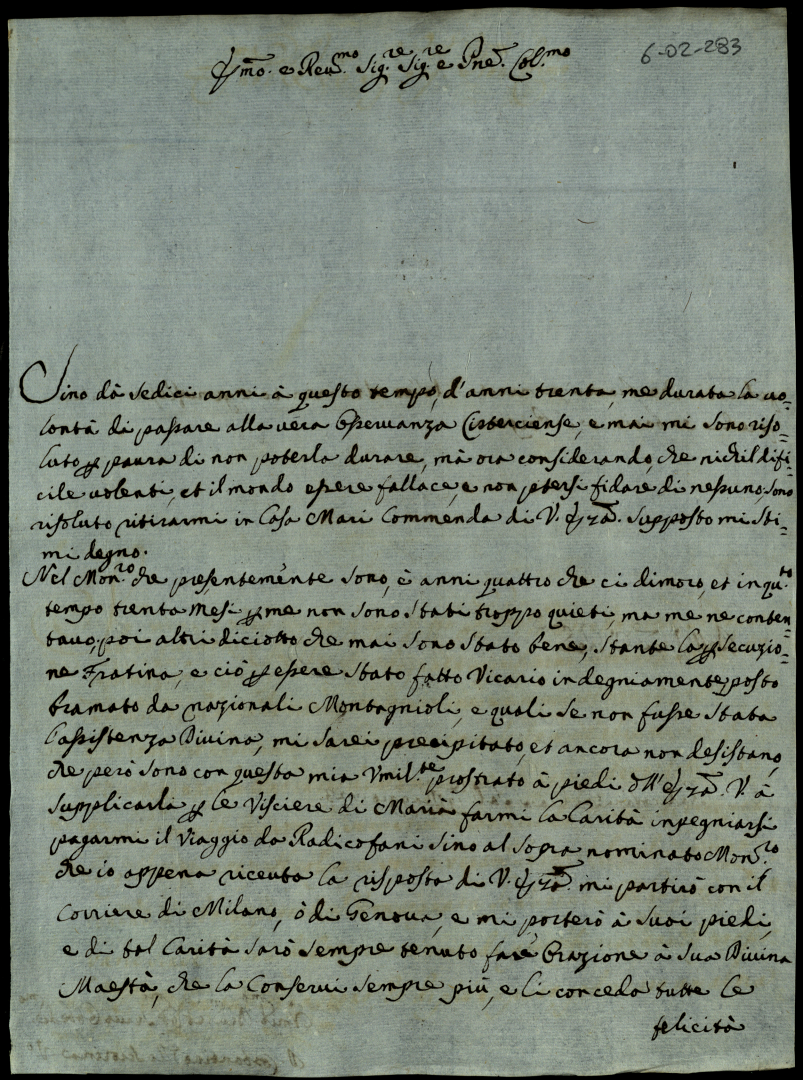 6-02-283
Emo. e Reu.mo Sig.re Sig.re e Pne. Col.mo
Sino dà sedici anni à questo tempo, d'anni trenta, me durata la uo=
lontà di passare alla uera Osseruanza Cisterciense, e mai mi sono riso=
luto p paura di non poterla durare, mà ora considerando, che nichil difi=
cile uolenti, et il mondo essere fallace, e non potersi fidare di nessuno sono
risoluto ritirarmi in Casa Mari Commenda di V. Emza. supposto mi sti=
mi degno.
Nel Mon.ro che presentemente sono, è anni quattro che ci dimoro, et in qu.to
tempo trenta Mesi p me non sono stati troppo quieti, ma me ne conten=
tauo, poi altri diciotto che mai sono stato bene, stante la psecuzio=
ne Fratina, e ciò p essere stato fatto Vicario indegniamente, posto
bramato da nazionali Montagnioli, e quali se non fusse stata
l'assistenza Diuina, mi sarei precipitato, et ancora non desistano,
che però sono con questa mia Vmil.te prostrato à piedi dll'Emza. V. à
supplicarla p le Visciere di Maria farmi la Carità inpegniarsi
pagarmi il Viaggio da Radicofani sino al sopra nominato Mon.ro
che io appena riceuta la risposta di V. Emza. mi partirò con il
Corriere di Milano, ò di Genoua, e mi porterò à suoi piedi,
e di tal Carità sarò sempre tenuto fare Orazione à Sua Diuina
Maestà, che la Conserui sempre più, e li conceda tutte le
felicità